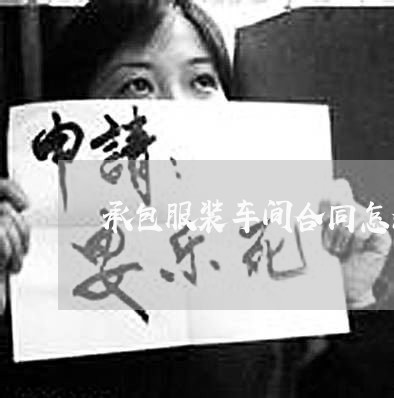 申請：
承包服装车间合同怎
安乐死